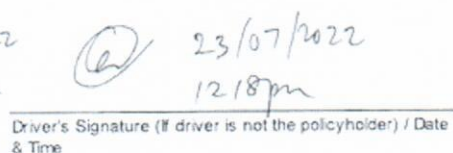 2
23/07/2022
1218pm
Driver's Signature (If driver is not the policyholder) / Date
& Time